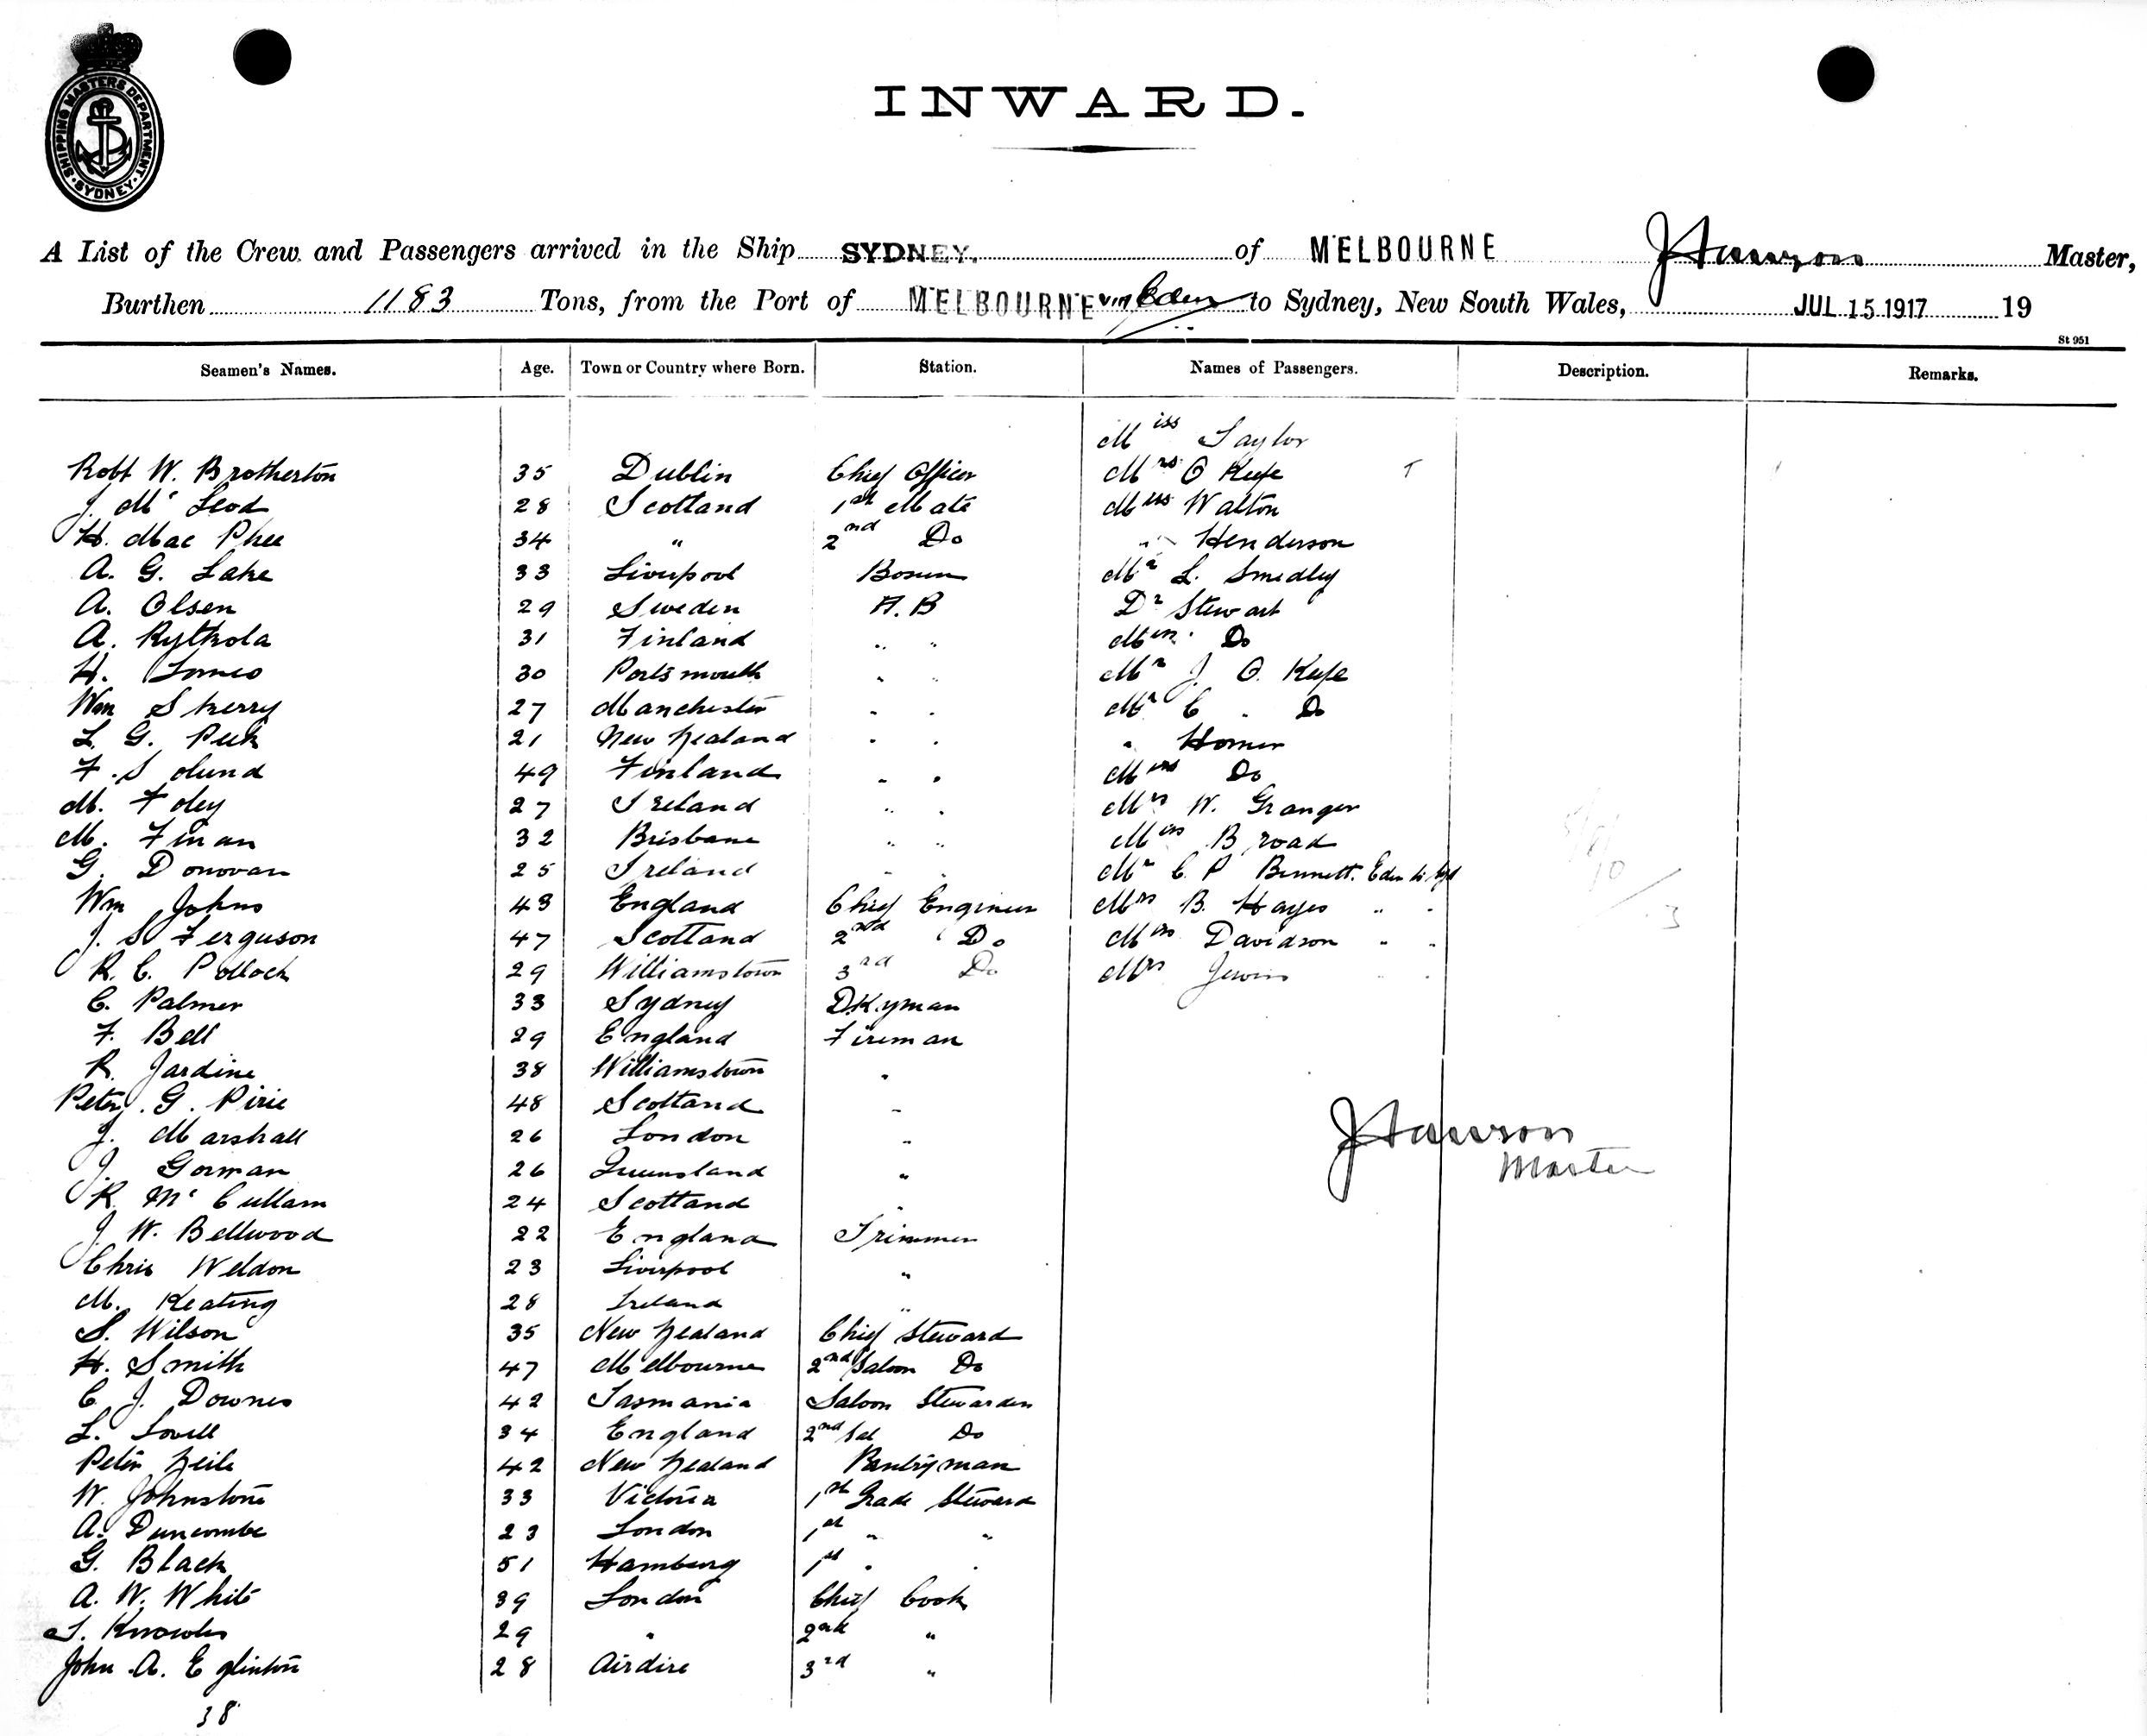 SHIPPING MASTERS DEPARTMENT. SYDNEY
INWARD.
A List of the Crew and Passengers arrived in the Ship SYDNEY. of MELBOURNE Master,
Burthen 1183 Tons, from the Port of MELBOURNE via Eden to Sydney, New South Wales, JUL 15 1917 19
St 951
Seamen's Names. Age. Town or Country where Born. Station. Names of Passengers. Description. Remarks.
Miss Taylor
Robt W. Brotherton 35 Dublin Chief Officer Mrs O Keefe T
J. Mc Leod 28 Scotland 1st Mate Miss Walton
H. Mac Phee 34 " 2nd Do " Henderson
A. G. Lake 33 Liverpool Bosun Mr L. Smedley
A. Olsen 29 Sweden A.B Dr Stewart
A. Rytkola 31 Finland " " Mrs. Do
H. Lomes 30 Portsmouth " " Mr J. O. Keefe
Wm Skerry 27 Manchester " " Mr C " Do
L. G. Peek 21 New Zealand " " " Homer
F. Solund 49 Finland " " Mrs Do
M. Foley 27 Ireland " " Mrs W. Granger
M. Finan 32 Brisbane " " Mrs Broad
G. Donovan 25 Ireland " " Mr C. P Bennett. Eden to Syd
Wm Johns 43 England Chief Engineer Mrs B. Hayes " "
J. S. Ferguson 47 Scotland 2nd Do Mrs Davidson " "
R. C. Pollock 29 Williamstown 3rd Do Mrs " "
C. Palmer 33 Sydney DKyman
F. Bell 29 England Fireman
R. Jardine 38 Williamstown "
Peter. G. Pirie 48 Scotland "
J. Marshall 26 London "
J. Gorman 26 Queensland "
R. Mc Cullam 24 Scotland "
Master
J. W. Bellwood 22 England Trimmer
Chris Weldon 23 Liverpool "
M. Keating 28 Ireland "
S. Wilson 35 New Zealand Chief Steward
H. Smith 47 Melbourne 2nd Saloon Do
C. J. Downes 42 Tasmania Saloon Stewardess
L. Lovell 34 England 2nd Sal Do
Peter Zeile 42 New Zealand Pantryman
W. Johnstone 33 Victoria 1st Grade Steward
A. Duncombe 23 London 1st " "
G. Black 51 Hamburg 1st " "
A. W. White 39 London Chief Cook
T. Knowles 29 " 2nd "
John A. Eglinton 28 Airdire 3rd "
38